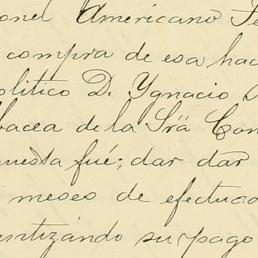 onel Americano Te
compra de esa hac
olitico D. Ygnacio
bacea de la Srã Con
uesta fué; dar dar
meses de efectuad
ntizándo su pago